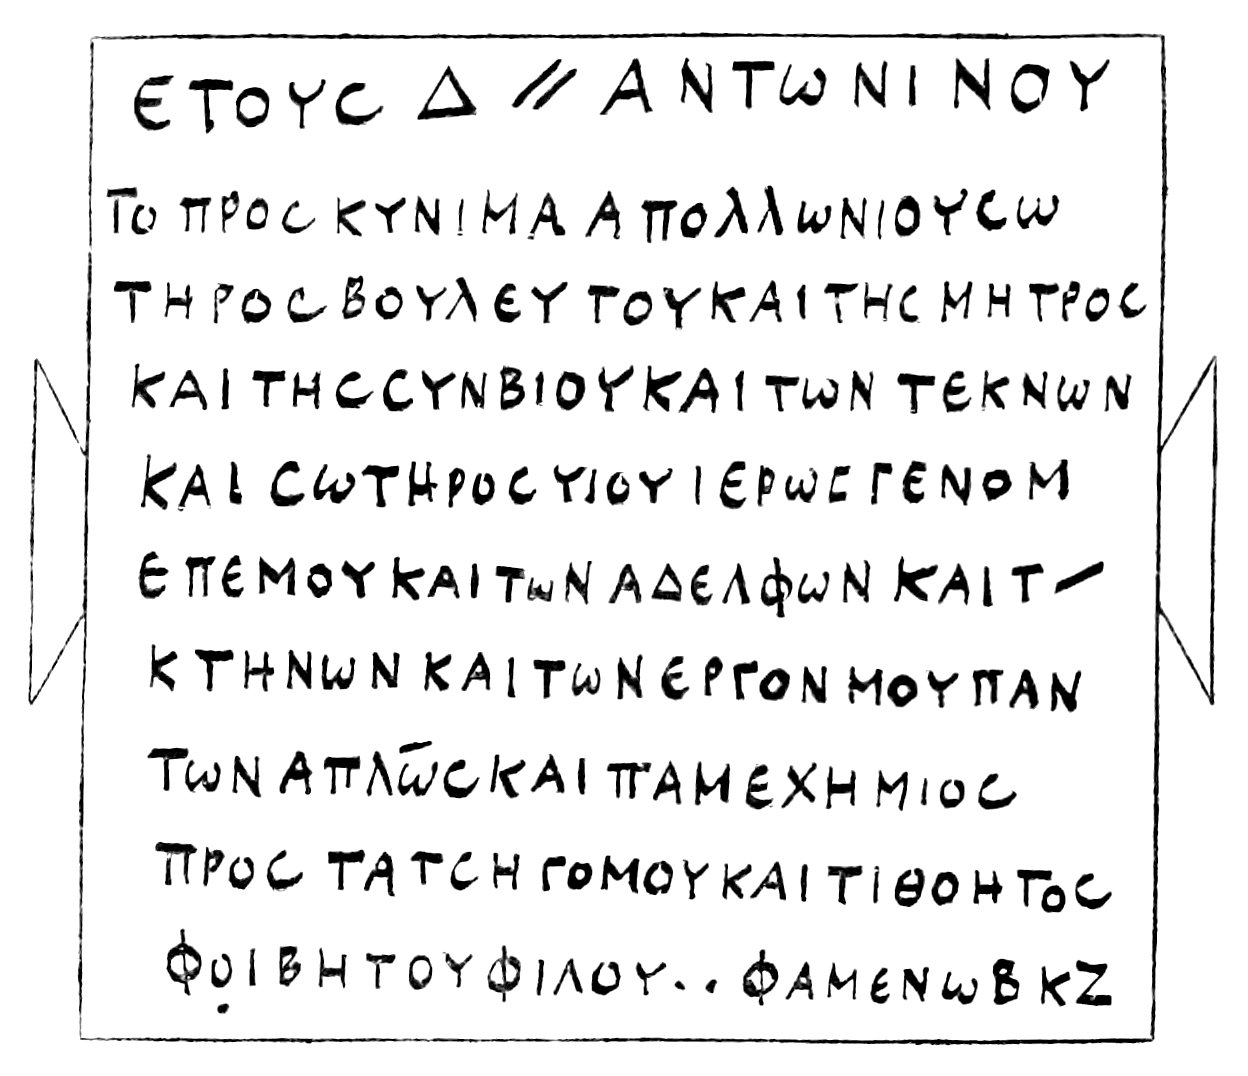 ΕΤΟΥϹ Δ // ΑΝΤωΝΙΝΟΥ
ΤΟ ΠΡΟϹΚΥΝΙΜΑ ΑΠΟΛΛωΝΙΟΥϹω
ΤΗΡΟϹΒΟΥΛΕΥΤΟΥΚΑΙΤΗϹΜΗΤΡΟϹ
ΚΑΙΤΗϹϹΥΝΒΙΟΥΚΑΙΤωΝ ΤΕΚΝωΝ
ΚΑΙ ϹωΤΗΡΟϹΥΙΟΥΙΕΡωϹΓΕΝΟΜ
ΕΠΕΜΟΥΚΑΙΤωΝ ΑΔΕΛΦωΝ ΚΑΙΤ/
ΚΤΗΝωΝ ΚΑΙΤωΝΕΡΓΟΝΜΟΥΠΑΝ
ΤωΝ ΑΠΛω̅ϹΚΑΙ ΠΑΜΕΧΗΜΙΟϹ
ΠΡΟϹ ΤΑΤϹΗ ΓΟΜΟΥΚΑΙΤΙΘΟΗΤΟϹ
ΦΟ̣ΙΒΗΤΟΥΦΙΛΟΥ.. ΦΑΜΕΝωΒ ΚΖ